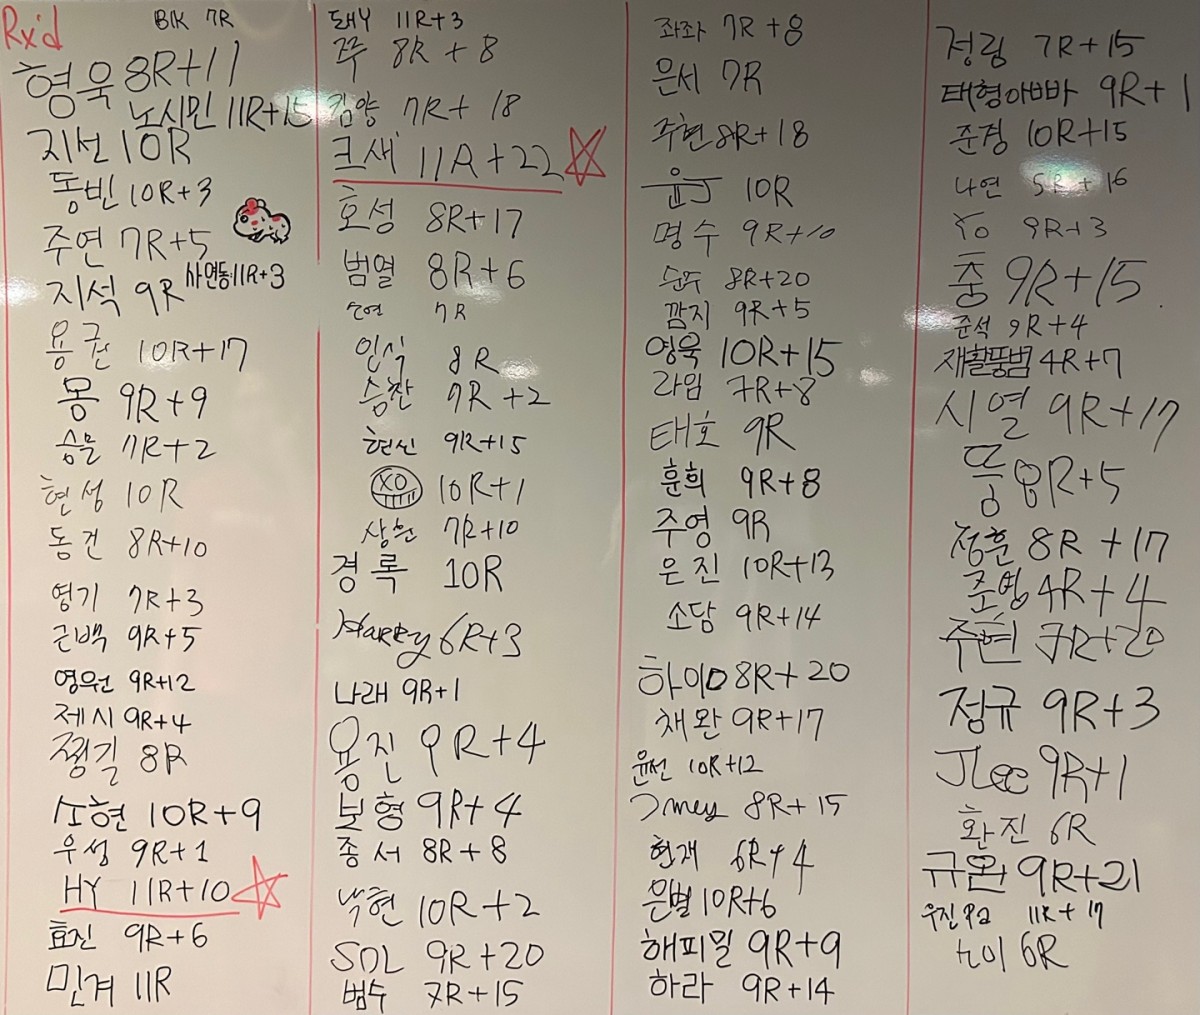 Rx'd
BIK 7R
형욱 8R+11
노시민 11R+15
지선 10R
동빈 10R+3
주연 7R+5
지석 9R
사연동 11R+3
용권 10R+17
몽 9R+9
승문 7R+2
현성 10R
동건 8R+10
영기 7R+3
근백 9R+5
영원 9R+12
제시 9R+4
찡길 8R
소현 10R+9
우성 9R+1
HY 11R+10
효진 9R+6
민겨 11R
11R+3
쭈 8R+8
김양 7R+18
크새 11R+22
호성 8R+17
범열 8R+6
7R
인식 8R
승찬 7R+2
현신 9R+15
XO 10R+1
상훈 7R+10
경록 10R
Harry 6R+3
나래 9R+1
용진 9R+4
보형 9R+4
종서 8R+8
낙현 10R+2
SOL 9R+20
범수 7R+15
좌좌 7R+8
은서 7R
주현 8R+18
윤J 10R
명수 9R+10
순주 8R+20
깜지 9R+5
영욱 10R+15
라임 7R+8
태호 9R
훈희 9R+8
주영 9R
은진 10R+13
소담 9R+14
하이D 8R+20
채완 9R+17
윤선 10R+12
Jmey 8R+15
현재 6R+4
은별 10R+6
해피밀 9R+9
하라 9R+14
정림 7R+15
태형아빠 9R+1
준경 10R+15
나연 5R+16
9R+3
충 9R+15
준석 9R+4
재활뚱범 4R+7
시열 9R+17
뚱 8R+5
정훈 8R+17
준영 4R+4
주현 7R+20
정규 9R+3
JLee 9R+1
환진 6R
규완 9R+21
우진Pa 11R+17
6R